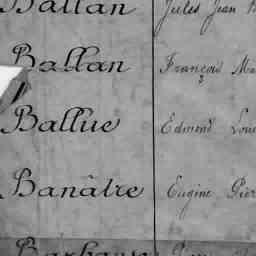 Ballan Jules Jean
Ballan François
Ballüe Edmond Loui
Banâtre Eugène Pier